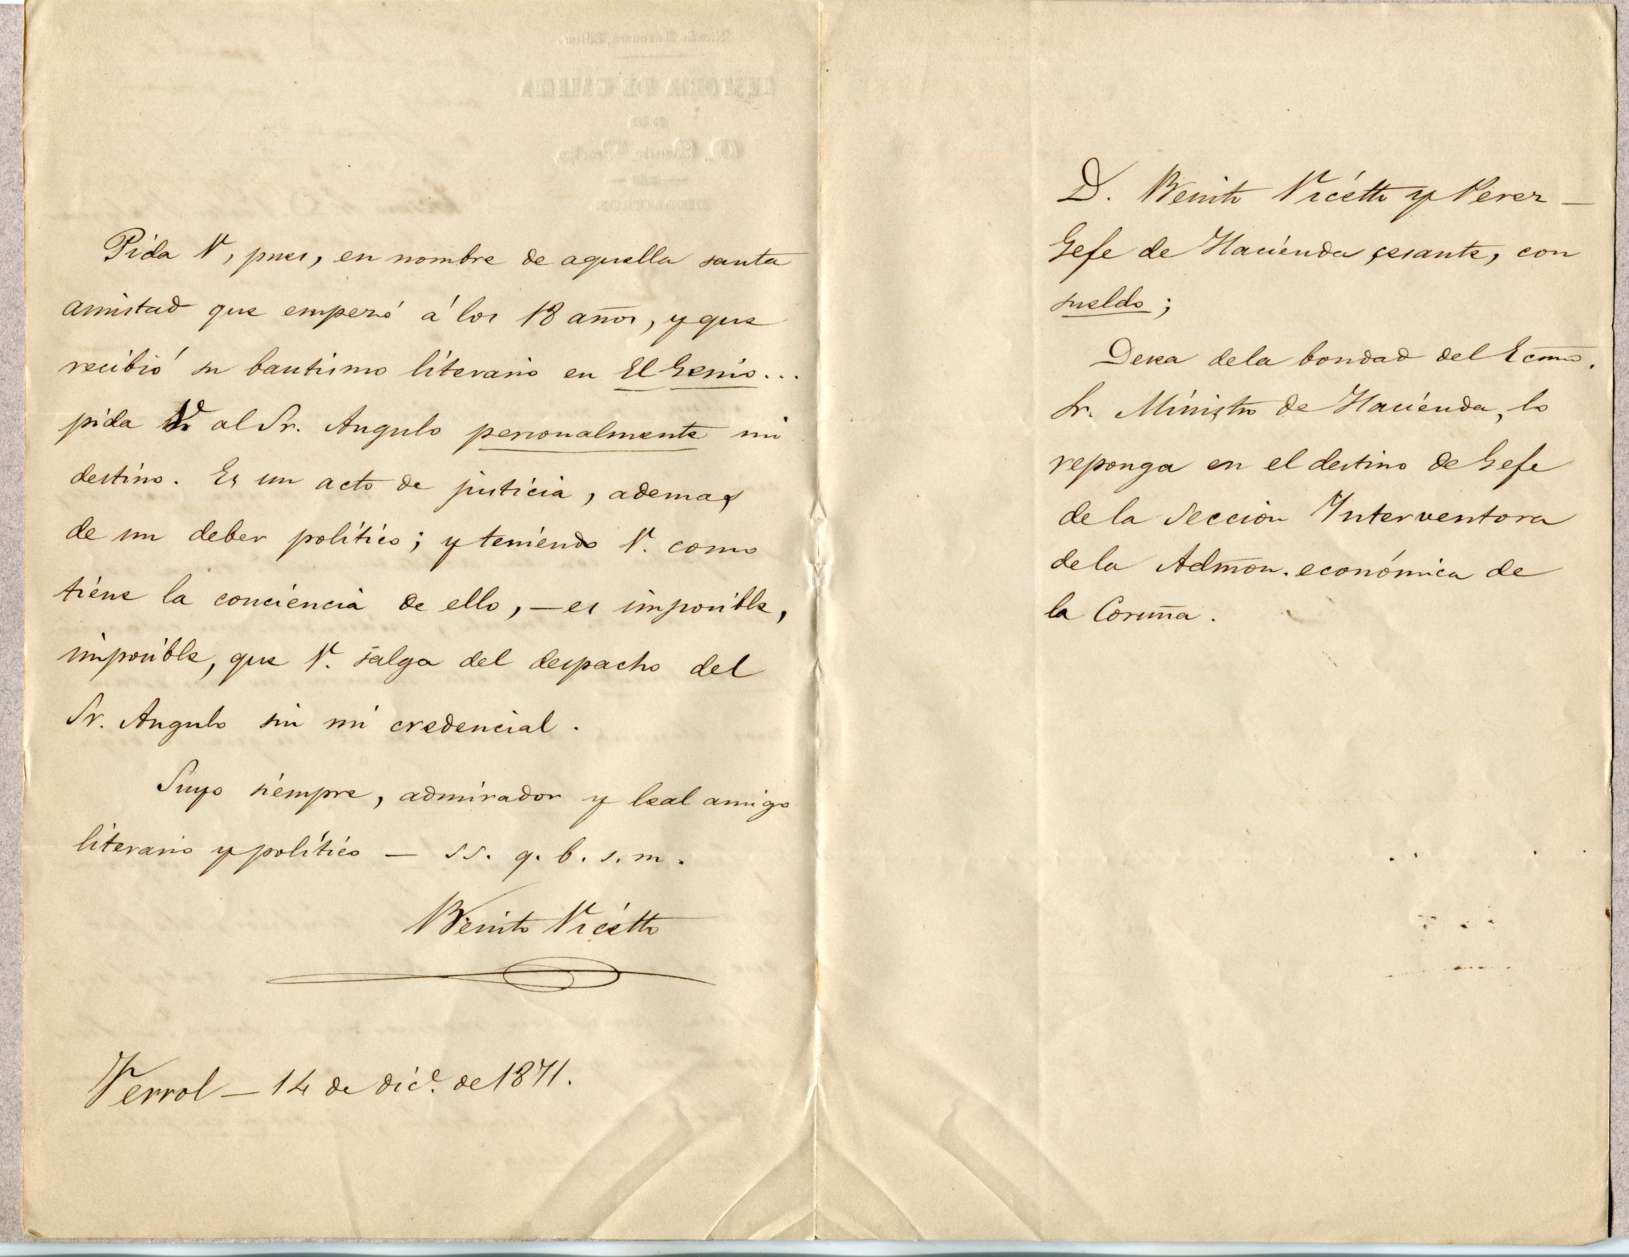 Pida V, pues, en nombre de aquella santa
amistad que empezó á los 18 años, y que
recibió su bautismo literario en El Genio...
pida V al Sr. Angulo personalmente mi
destino. Es un acto de justicia, ademas
de un deber político; y teniendo V. como
tiene la conciencia de ello, — es imposible,
imposible, que V. salga del despacho del
Sr. Angulo sin mi credencial.
Suyo siempre, admirador y leal amigo
literario y político — ss. q. b. s. m.
Benito Vicetto
Ferrol — 14 de dic.e de 1871.
D. Benito Vicetto y Perez —
Gefe de Hacienda cesante, con
sueldo;
Desea dela bondad del Ecmo.
Sr. Ministro de Hacienda, lo
reponga en el destino de Gefe
de la Seccion Interventora
dela Admon. económica de
la Coruña.